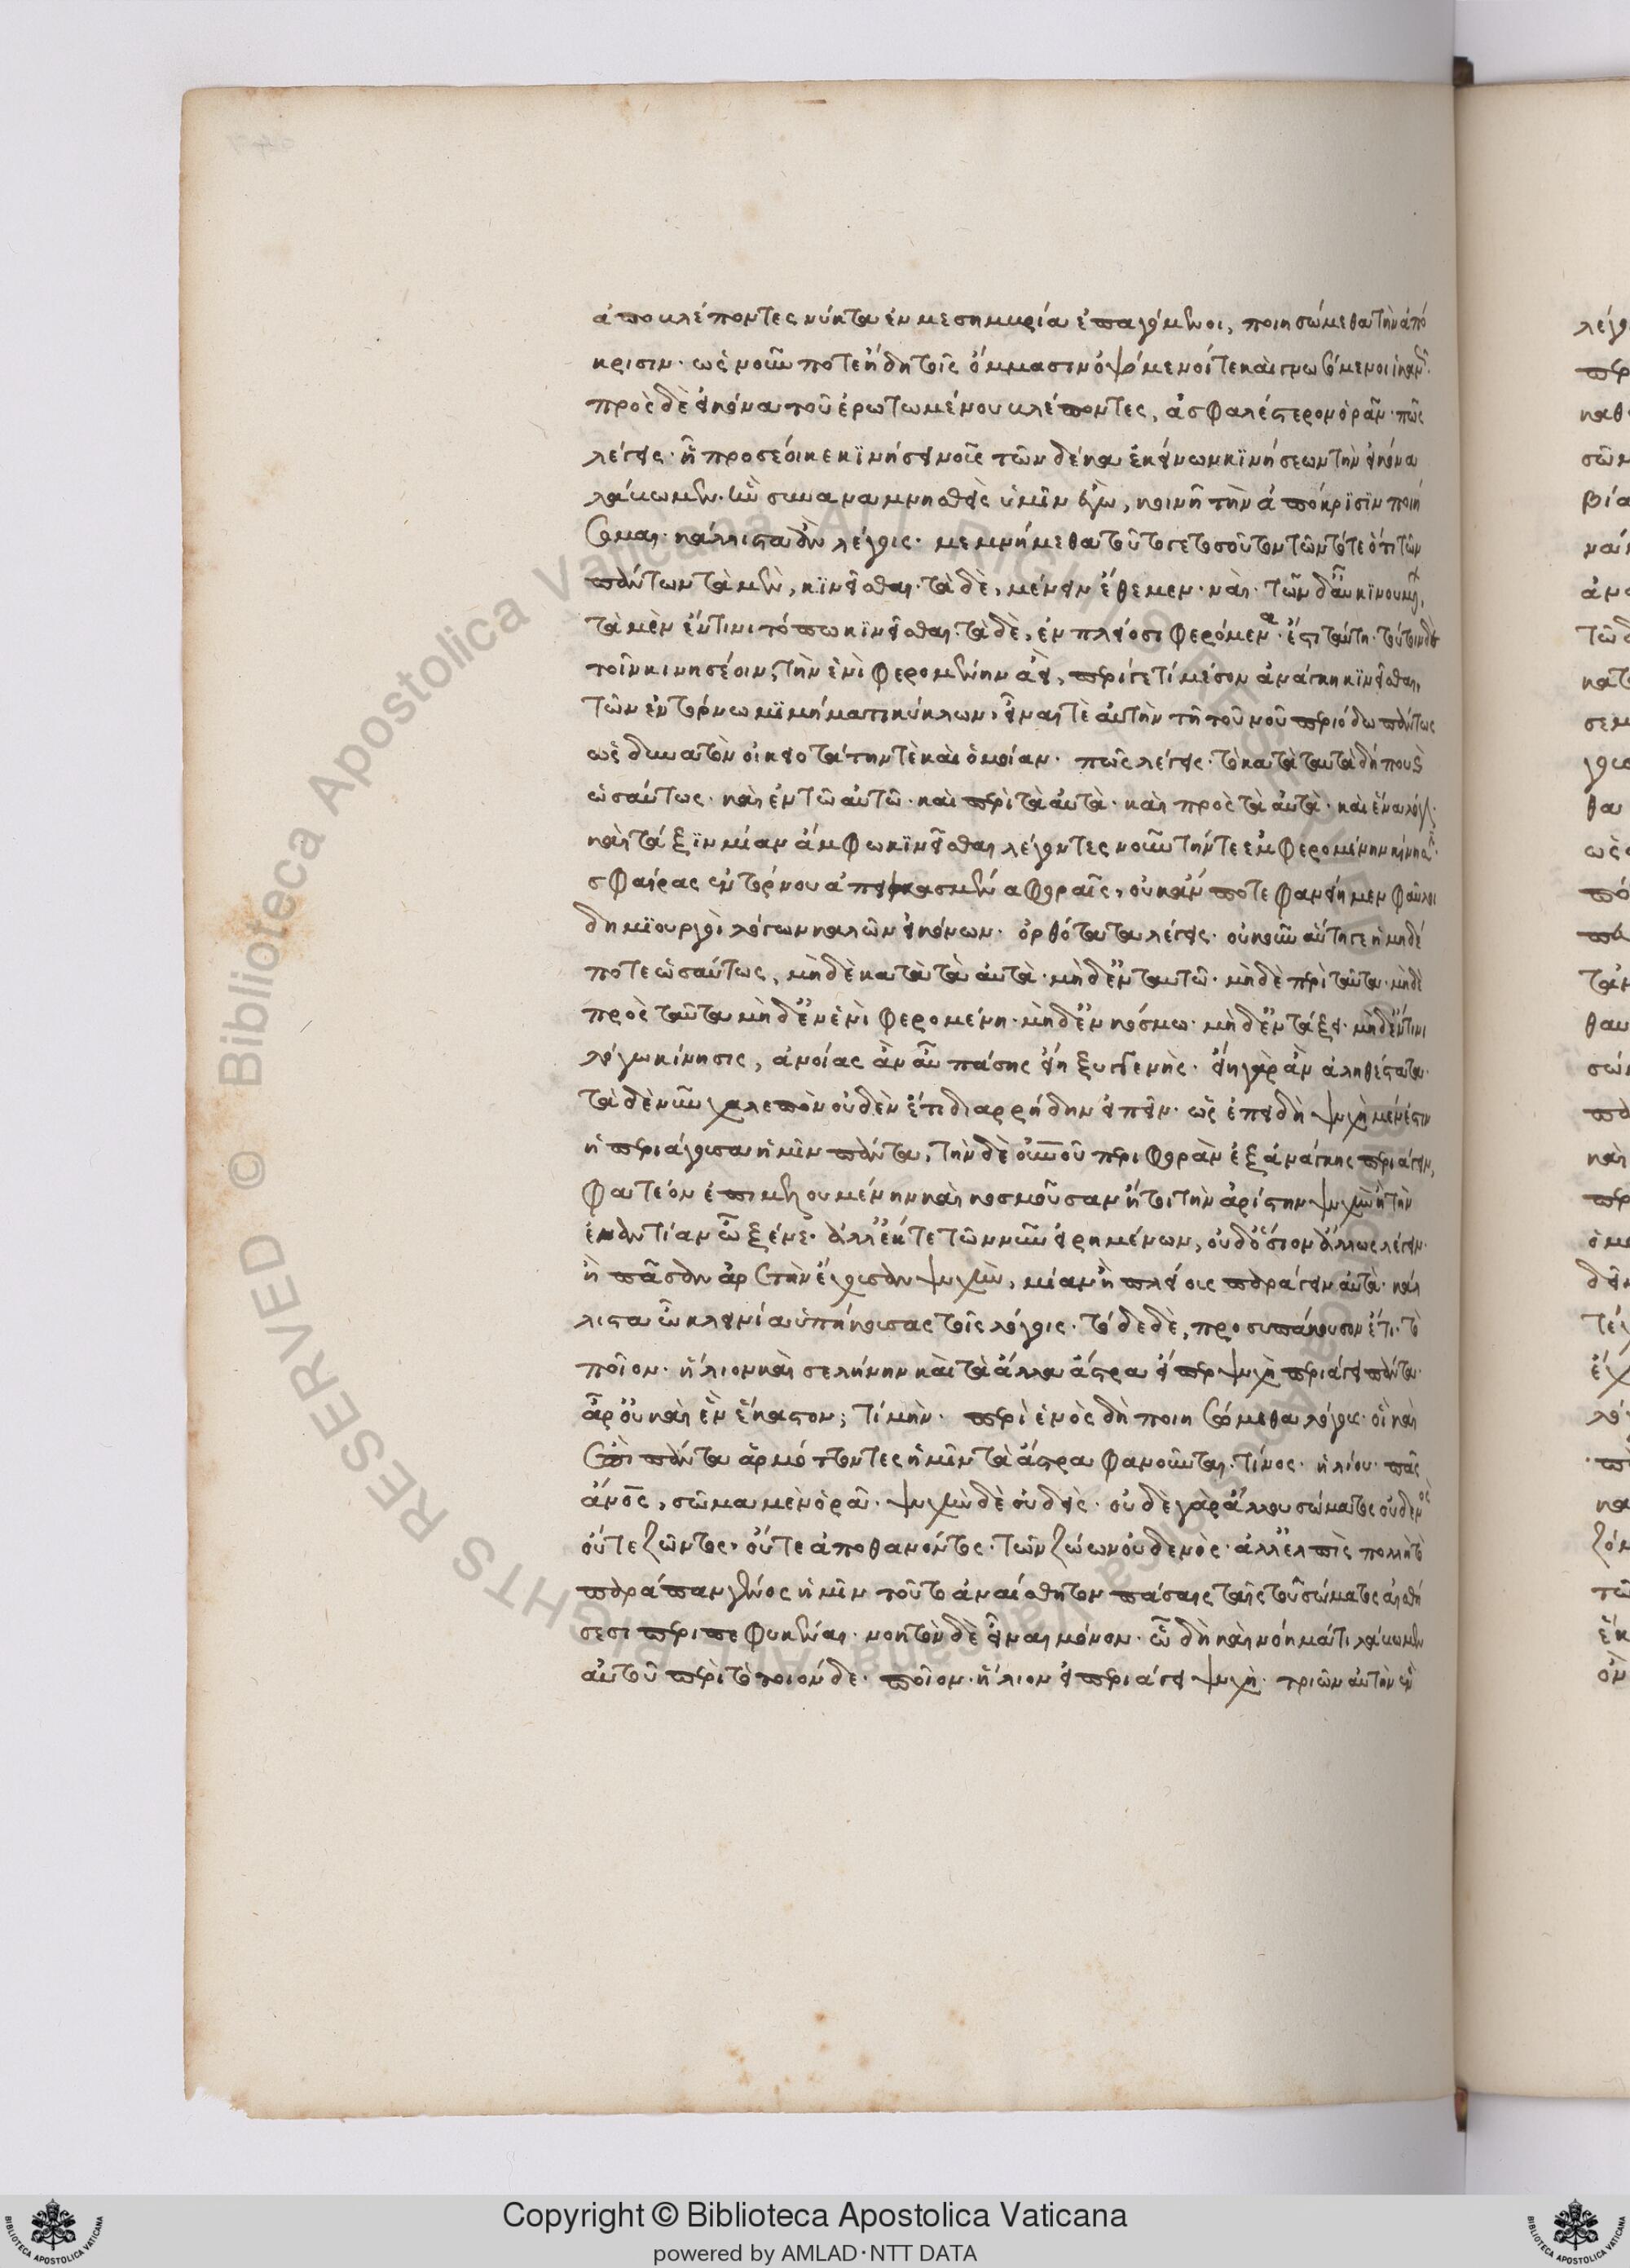 ἀποκλέποντες νύκτα ἐν μεσημυρία ἐπαγόμενοι, ποιησώμεθα τὴν ἀπό
κρισιν· ὡς νοῦν ποτε ἤδη τοῖς ὄμμασιν ὀψόμενοί τε καὶ γνωσόμενοι ἱκανῶς·
πρὸς δὲ εἰκόνα τοῦ ἐρωτωμένου κλέποντες, ἀσφαλέστερον ὁρᾶν· πῶς
λέγεις· ἧ προσέοικε κϊνήσει νοῦς τῶν δέκα ἐκείνων κϊνήσεων τὴν εἰκόνα
λάκωμεν· ἣν συναναμνησθεὶς ὑμῖν ἐγὼ, κοινῆ τὴν ἀπόκρϊσϊν ποιή
σομαι· κάλλιστα ἂν λέγοις· μεμνήμεθα τοῦτό γε τοσοῦτον τῶν τότε ὅτι τῶν
πάντων τὰ μὲν, κϊνεῖσθαι· τὰ δὲ, μένειν ἔθεμεν· ναί· τῶν δ' αὖ κϊνουμένων,
τὰ μὲν ἔν τινι τόπω κϊνεῖσθαι· τὰ δὲ, ἐν πλείοσι φερόμενα· ἔστι ταύτη· τούτοιν δὲ
τοῖν κινησέοιν, τὴν ἑνὶ φερομένην ἀεὶ, περί γέ τι μέσον ἀνάγκη κϊνεῖσθαι,
τῶν ἐντόρνω μϊμήματι κύκλων· εἶναι τὲ αὐτὴν τῆ τοῦ νοῦ περιόδω πάντως
ὡς δυνατὸν οἰκειοτάτην τὲ καὶ ὁμοίαν· πῶς λέγεις· τὸ κατὰ ταυτὰ δή που καὶ
ὡσαύτως· καὶ ἐν τῶ αὐτῶ· καὶ περὶ τὰ αὐτὰ· καὶ πρὸς τὰ αὐτὰ· καὶ ἕνα λόγον·
καὶ τάξϊν μίαν ἄμφω κϊνεῖσθαι λέγοντες νοῦν τήν τε ἐμφερομένην κίνησιν·
σφαίρας ἐντόρνου ἀπεικασμένα φοραῖς, οὐκ ἄν ποτε φανείημεν φαῦλοι
δημϊουργοὶ λόγων καλῶν εἰκόνων· ὀρθότατα λέγεις· οὐκοῦν αὖ ἥγε ἡ μηδέ
ποτε ὡσαύτως, μὴ δὲ κατὰ τὰ αὐτὰ· μὴ δ' ἐν ταυτῶ· μὴ δὲ περὶ ταῦτα· μὴ δὲ
πρὸς ταῦτα μὴ δ' ἐν ἑνὶ φερομένη· μὴ δ' ἐν κόσμω· μὴ δ' ἐν τάξει· μὴ δ' ἔν τινι
λόγω κίνησις, ἀνοίας ἂν αὖ πάσης εἴη ξυγγενὴς· εἴη γὰρ ἂν ἀληθέστατα·
τὰ δὲ νῦν χαλεπὸν οὐδὲν ἔτι διαρρήδην εἰπεῖν· ὡς ἐπειδὴ ψυχὴ μέν ἐστιν
ἡ περιάγουσα ἡμῖν πάντα, τὴν δὲ οὐρανοῦ περιφορὰν ἐξ ἀνάγκης περιάγειν,
φατέον ἐπιμελουμένην καὶ κοσμοῦσαν ἤτοι τὴν ἀρίστην ψυχὴν ἢ τὴν
ἐναντίαν ὦ ξένε· ἀλλ' ἔκ τε τῶν νῦν εἰρημένων, οὐδ' ὅσιον ἄλλως λέγειν·
ἢ πᾶσαν ἀρετὴν ἔχουσαν ψυχὴν, μίαν ἢ πλείους περιάγειν αὐτὰ· κάλ
λιστα ὦ κλεινία ὑπήκουσας τοῖς λόγοις· τόδε δὲ, προσυπάκουσον ἔτι· τὸ
ποῖον· ἥλιον καὶ σελήνην καὶ τὰ ἄλλα ἄστρα εἴπερ ψυχὴ περιάγει πάντα·
ἆρ' οὐ καὶ ἓν ἕκαστον; τί μὴν· περὶ ἑνὸς δὴ ποιησόμεθα λόγους· οἳ καὶ
ἐπὶ πάντα ἁρμόττοντες ἡμῖν τὰ ἄστρα φανοῦνται· τίνος· ἡλίου· πᾶς
ἄνος, σῶμα μὲν ὁρᾶ· ψυχὴν δὲ οὐδεὶς· οὐδὲ γὰρ ἄλλου σώματος οὐδενὸς
οὔτε ζῶντος· οὔτε ἀποθανόντος· τῶν ζώων οὐδενὸς· ἀλλ' ἐλπὶς πολλὴ τὸ
παράπαν γένος ἡμῖν τοῦτο ἀναίσθητον πάσαις ταῖς τοῦ σώματος αἰσθή
σεσι περιπεφυκέναι· νοητὸν δὲ εἶναι μόνον· ὦ δὴ καὶ νοήματι λάκωμεν
αὐτοῦ περὶ τὸ τοιόνδε· ποῖον· ἥλιον εἰ περιάγει ψυχὴ· τριῶν αὐτὴν ἓν